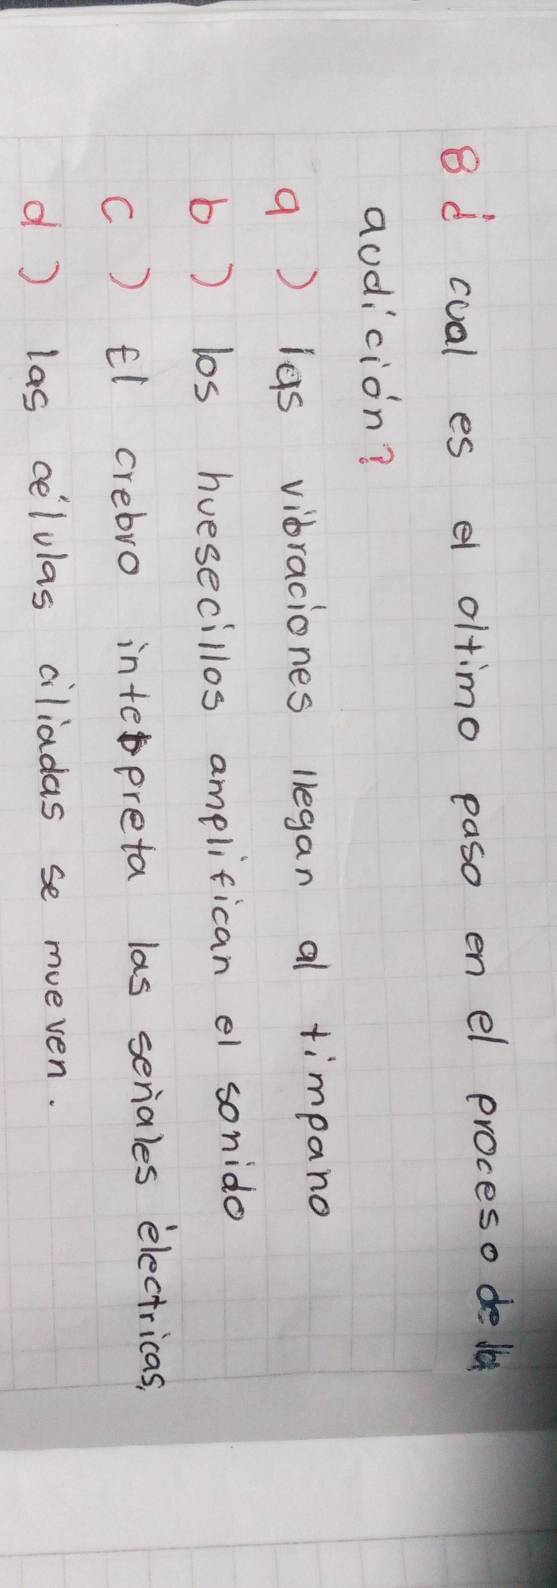 8 ¿ cual es el oltimo paso en el proceso de la
audición?
a) las vibraciones llegan al timpano
b) los huesecillos amplifican el sonido
c) El crebro interpreta las señales électricas,
d) las células ciliadas se mueven.